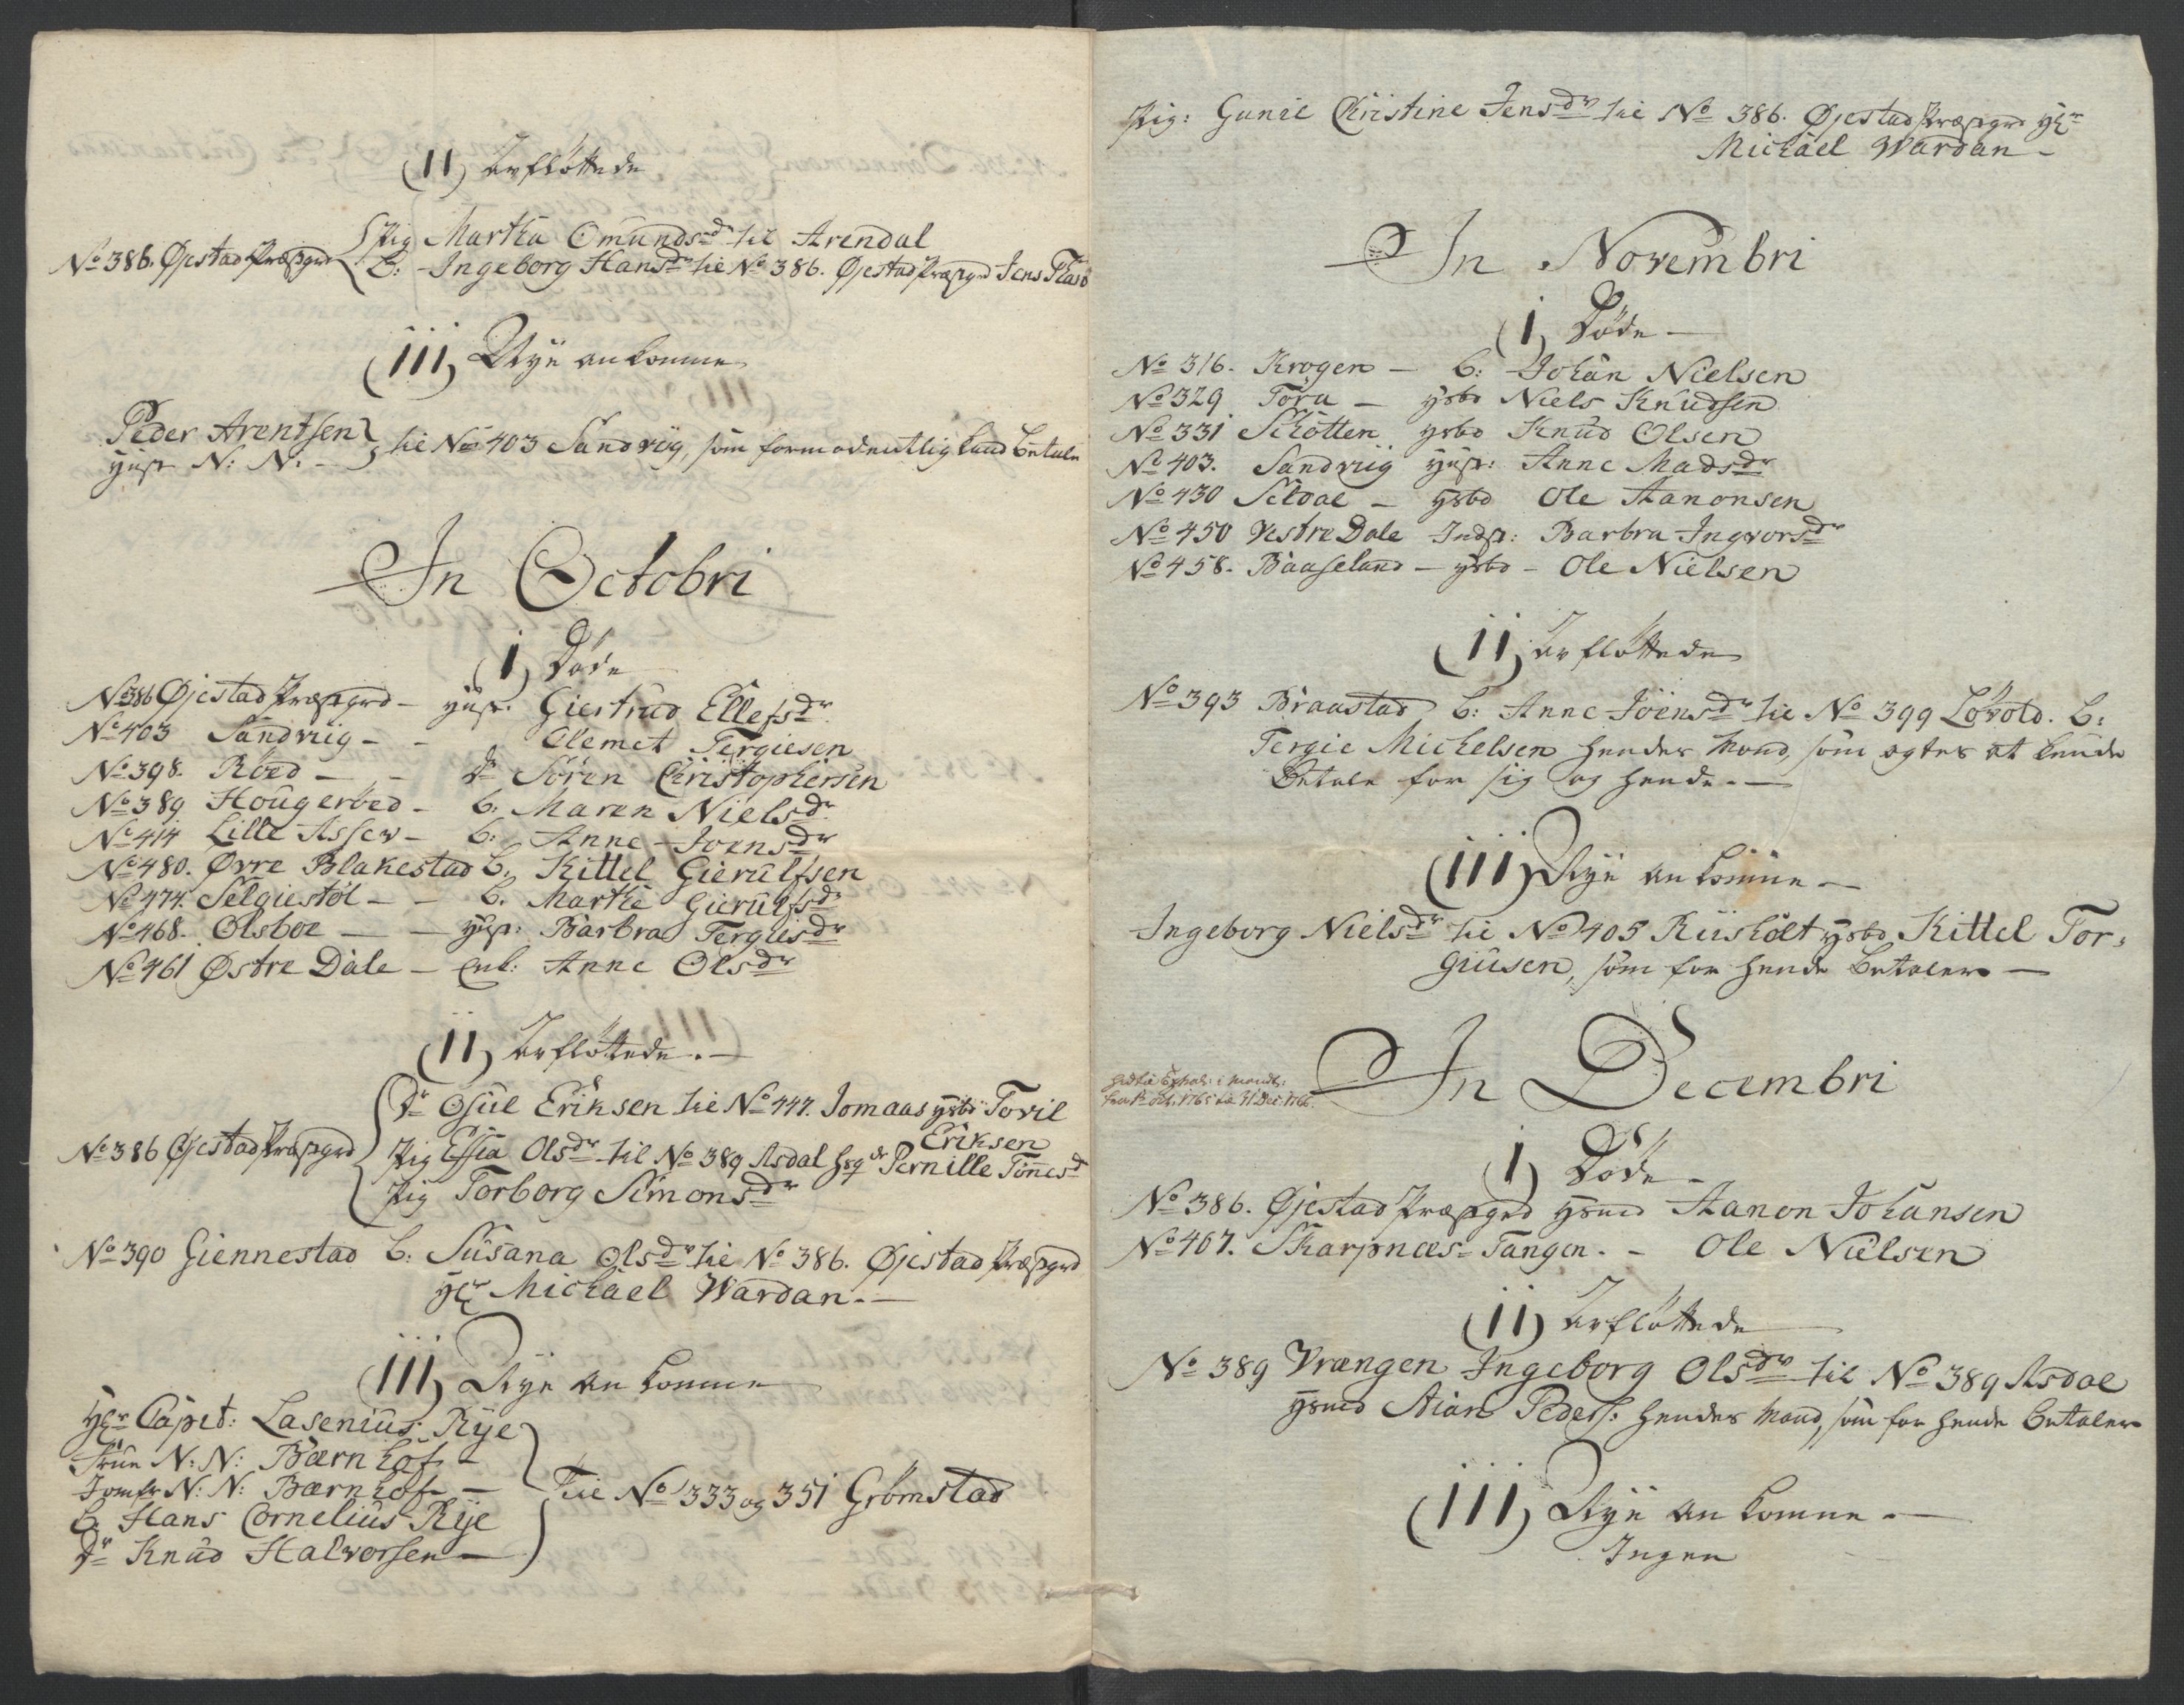 (II) Verfløttede
No 386. Øjestad Præstgrd { Pig Martha Omundsdr til Arendal
b: Ingeborg Hansdr til No 386. Øjestad Præstgrd Jens
(III) Nye ankomne
Peder Arentsen }
hust N: N: - } til No 403 Sandviig, som formodentlig kand betale
In Octobri
(I) Døde
No 386 Øjestad Præstgrd - hust. Giertrud Ellefsdr
No 403 Sandviig - - Clemet Tergiesen
No 398. Röed - - dr Sören Christophersen
No 389 Hougeröed - b: Maren Nielsdr
No 414 Lille Asser - b: Anne Joensdr
No 480. Øvre Blakestad b. Kittel Gierulfsen
No 474. Selgiestöl - - b. Marthe Gierulfsdr
No 468. Olsboe - - hust: Barbra Tergiesdr
No 461 Østre Dale - Enk: Anne Olsdr
(II) Verfløttede. -
No 386 Øjestad Præstgrd { dr Osul Eriksen til No 447. Jomaas hsbd Tovil
Eriksen
Pig Essia Olsdr til No 389 Asdal hos Pernille Tönnesd
Pig Torborg Simonsdr
No 390 Giennestad b: Susana Olsdr til No 386. Øjestad Præstgrd
Hr Michael Wardan. -
(III) Nye ankomne
Hr Capit: Lasenius Rye
Frue N: N: Bærnhof -
Jomfr N: N: Bærnhof - } Til No 333 og 351 Grömstad
b. Hans Cornelius Rye
dr Knud Halvorsen -
Pig: Gunil Christine Jensdr til No 386. Øjestad Præstgrd Hr
Michael Wardan -
In Novembri
(I) Døde -
No 316. Krogen - b: Johan Nielsen
No 329 Tora - hsbd Niels Knudsen
No 331 Skotten hsbd Knud Olsen
No 403. Sandviig hust: Anne Madsdr
No 430 Seldal - hsbd Ole Aanonsen
No 450 Vestre Dale Indst: Barbra Ingvorsdr
No 458. Baaseland - hsbd - Ole Nielsen
(II) Verfløttede
No 393 Braastad b: Anne Jöensdr til No 399 Lövold. b:
Tergie Michelsen hendes Mand, som agtes at kunde
betale for sig og hende. -
(III) Nye ankomne -
Ingeborg Nielsdr til No 405 Riisholt hsbd Kittel Tor-
giusen, som for hende betaler -
In Decembri
fra 1 Oct. 1765 til 31 Dec: 1766.
(I) Døde -
No 386. Øjestad Præstgrd hsmd Aanon Johansen
No 467. Skarpnæs-Tangen. - Ole Nielsen
(II) Verfløttede
No 389 Vrængen Ingeborg Olsdr til No 389 Asdal
hsmd Aian Peders: hendes Mand, som for hende betaler
(III) Nye ankomne. -
Ingen